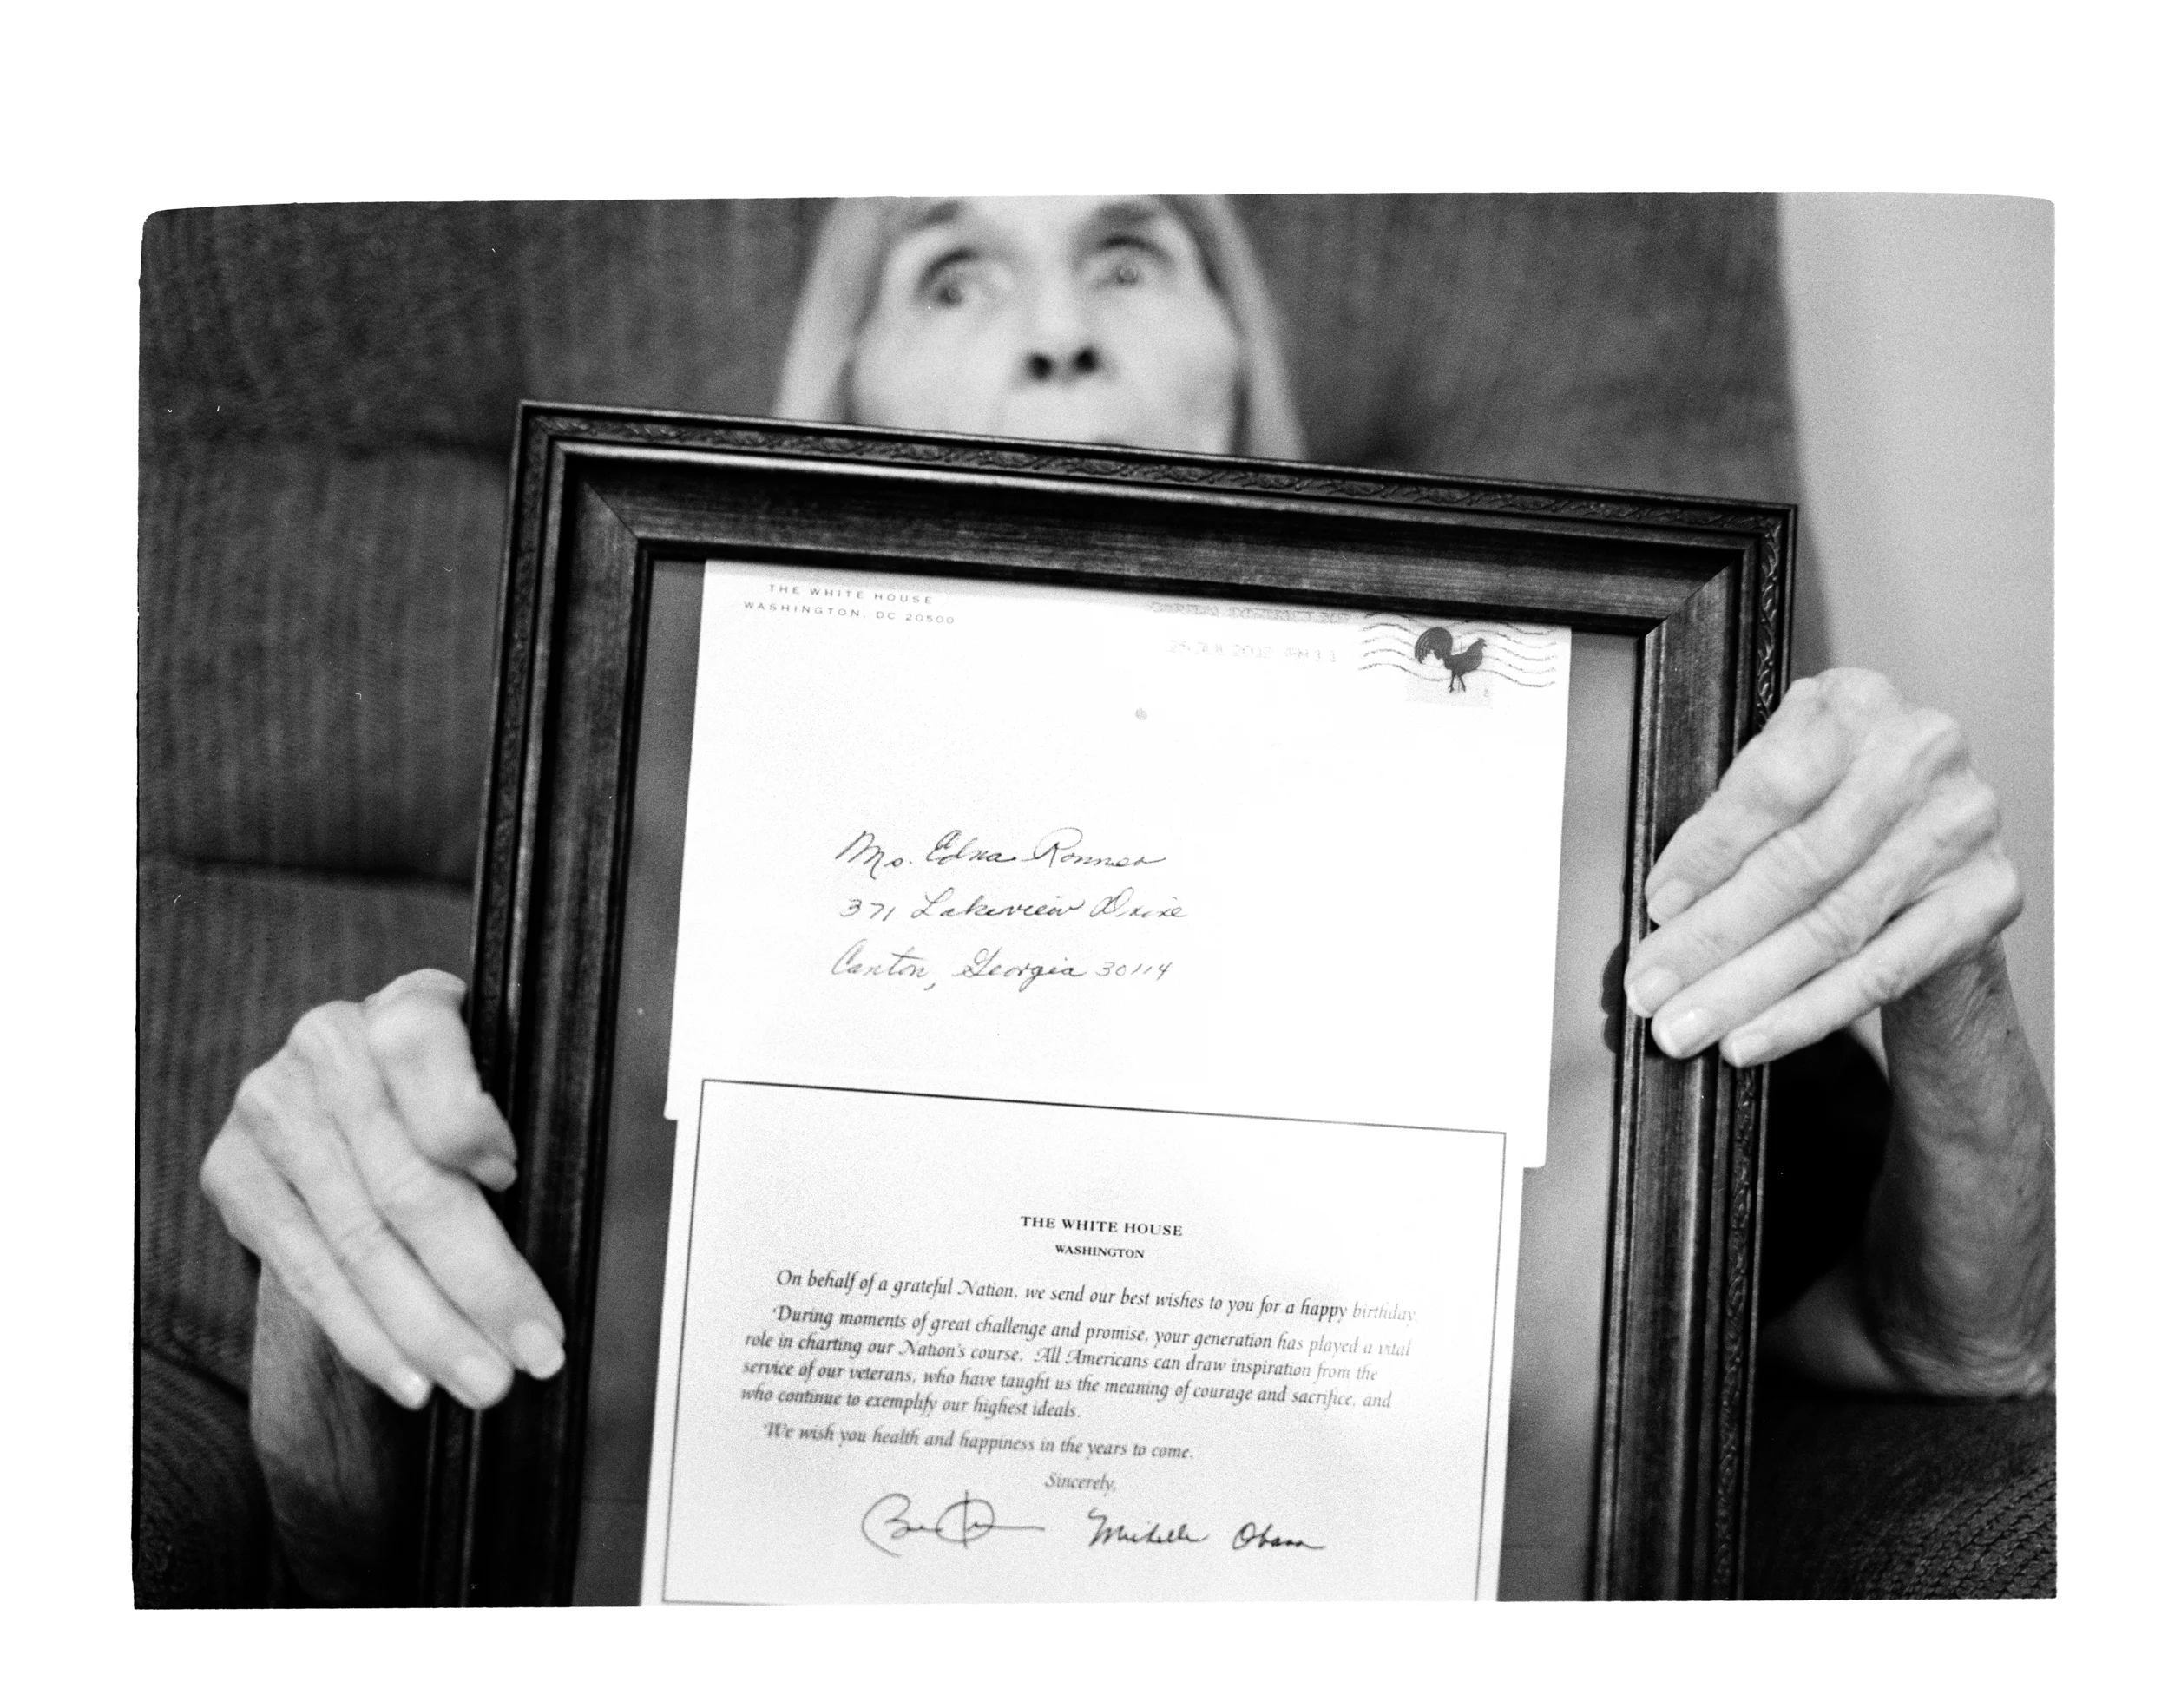 THE WHITE HOUSE
WASHINGTON, DC 20500
25 JUL 2012 PM 3 1
Ms. Edna Ronner
371 Lakeview Drive
Canton, Georgia 30114
THE WHITE HOUSE
WASHINGTON
On behalf of a grateful Nation, we send our best wishes to you for a happy birthday.
During moments of great challenge and promise, your generation has played a vital
role in charting our Nation's course. All Americans can draw inspiration from the
service of our veterans, who have taught us the meaning of courage and sacrifice, and
who continue to exemplify our highest ideals.
We wish you health and happiness in the years to come.
Sincerely,
Michelle Obama